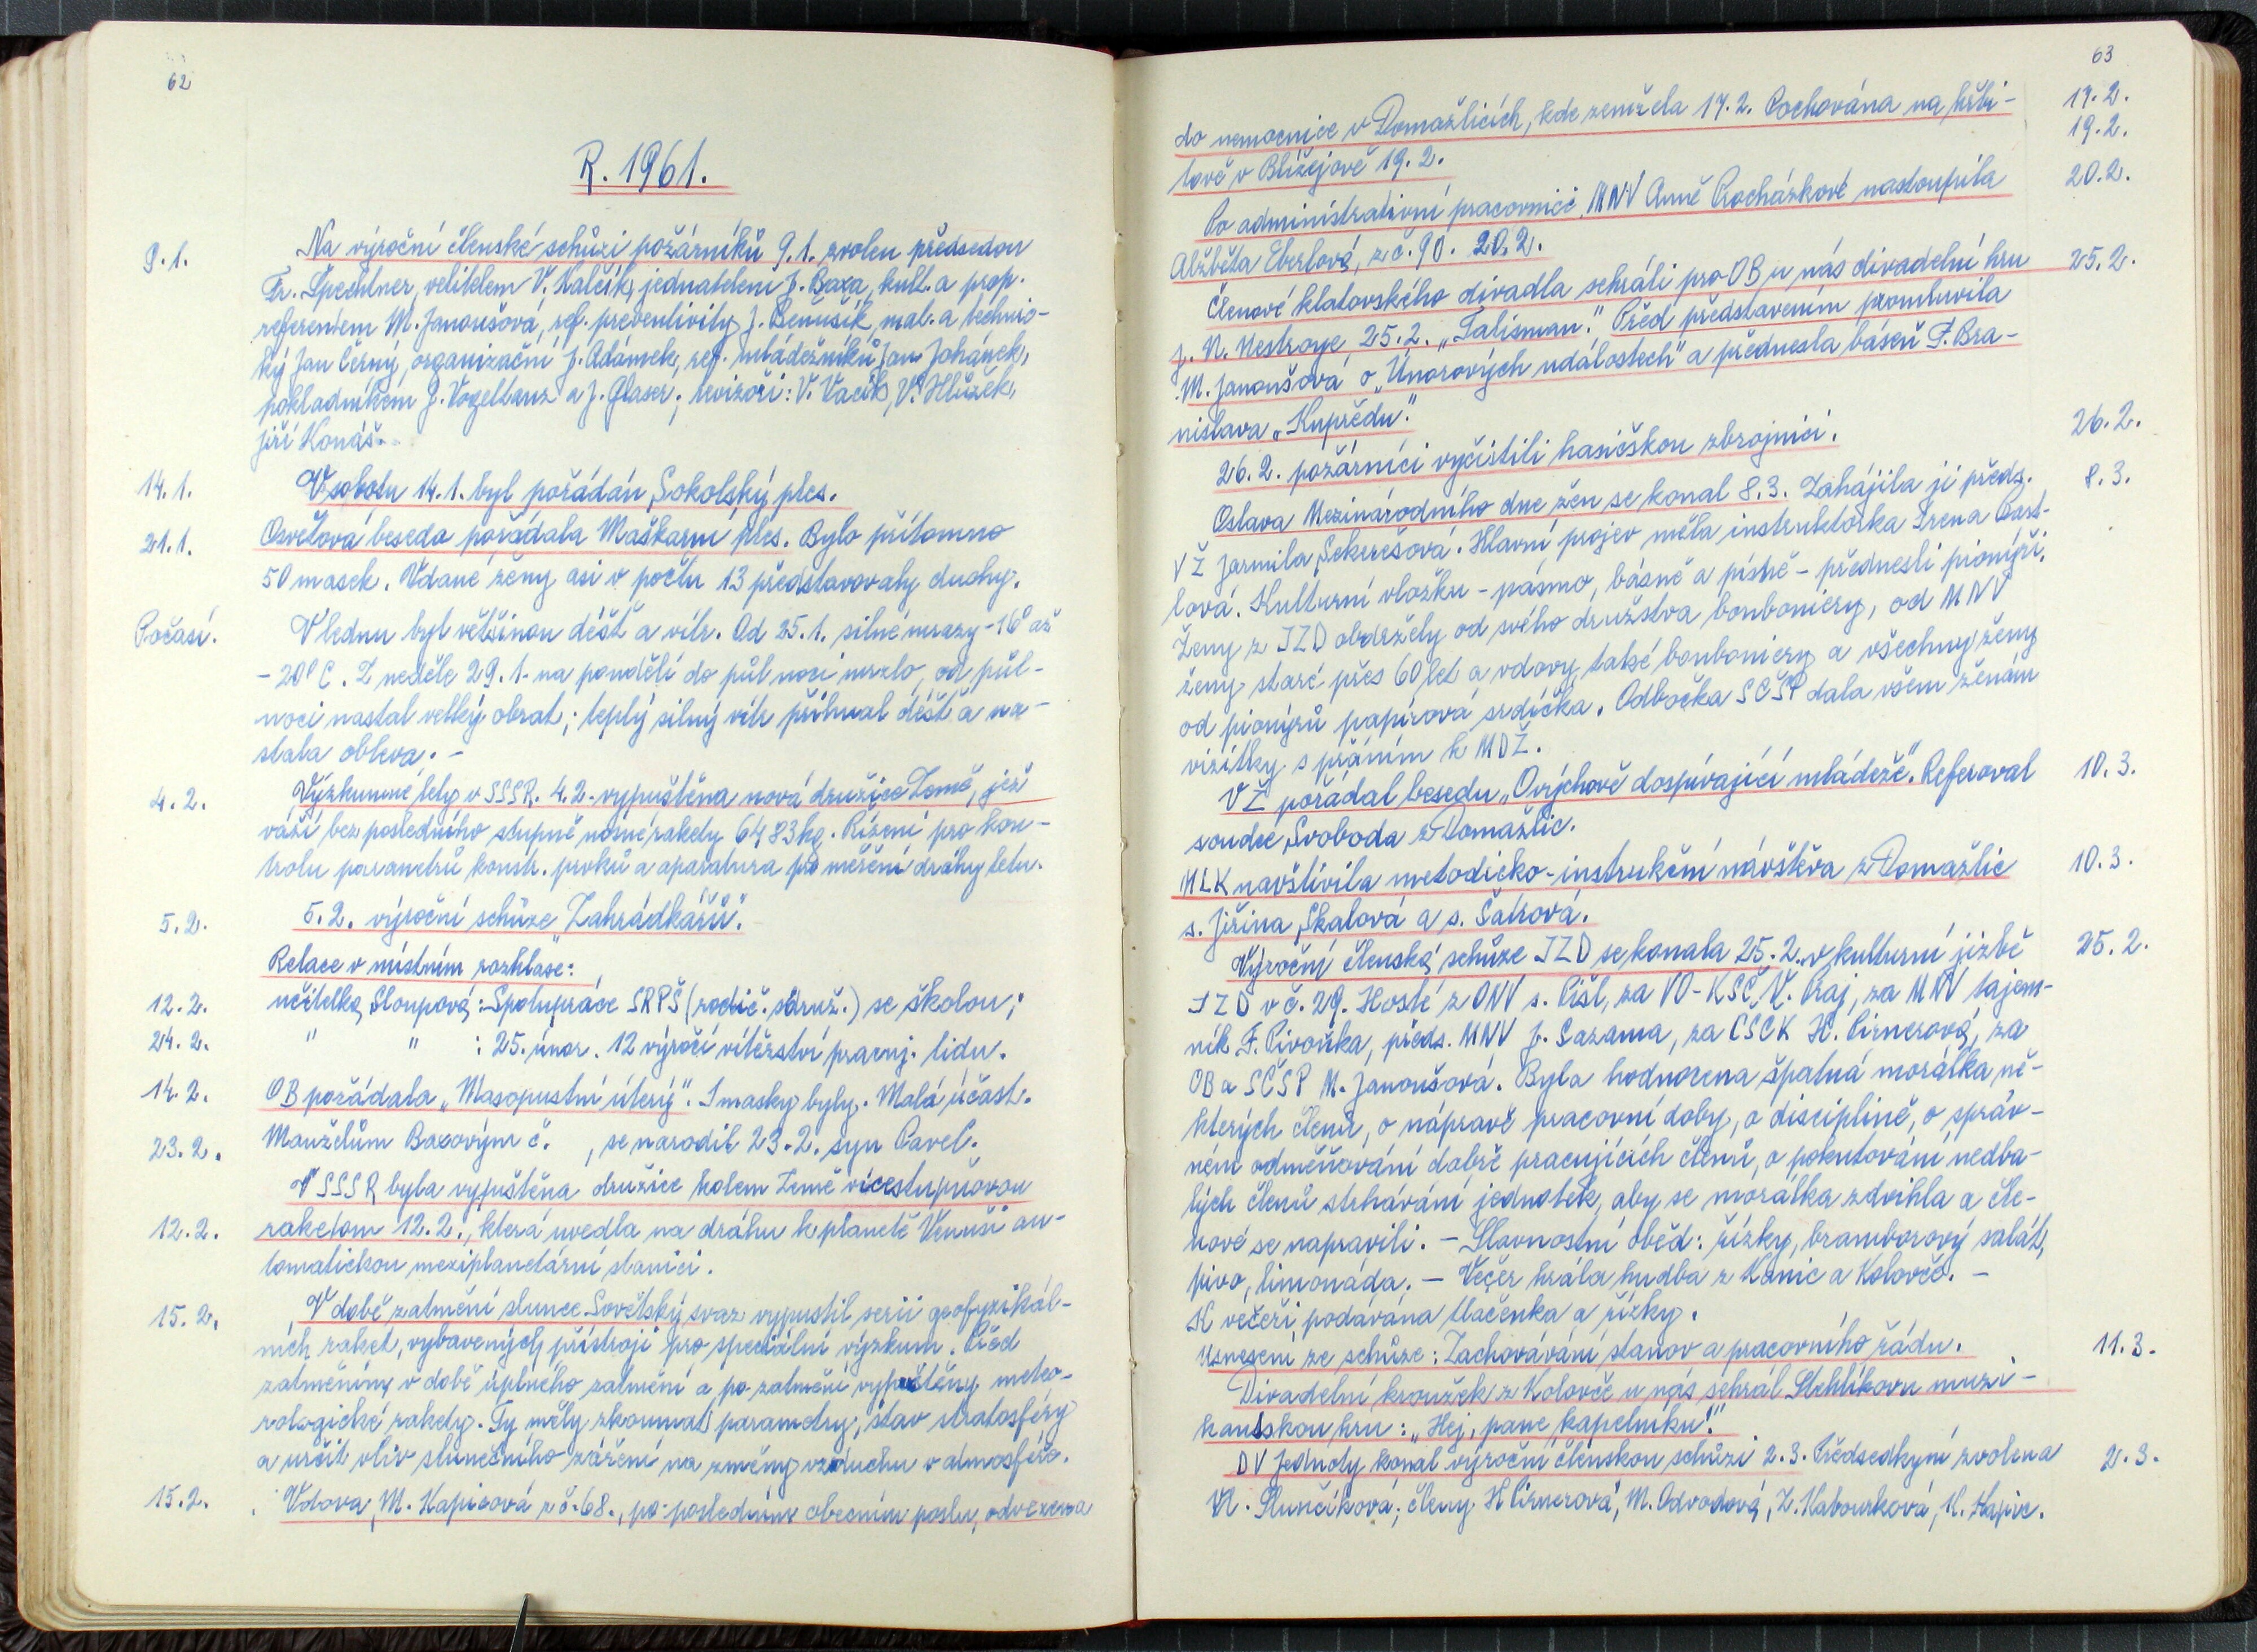 62
R. 1961.
9.1. Na výroční členské schůzi požárníků 9.1. zvolen předsedou
Fr. Spechtner, velitelem V. Kalčík, jednatelem J. Baxa, kult. a prop.
referentem M. Janoušová, ref. preventivity J. Benušík, mat. a technic-
ký Jan Černý, organizační J. Adámek, ref. mládežníků Jan Johánek,
pokladníkem J. Vogeltanz a J. Glaser, revizoři: V. Vacík, V. Hlůžek,
Jiří Konáš.
14.1. V sobotu 14.1. byl pořádán Sokolský ples.
21.1. Osvětová beseda pořádala Maškarní ples. Bylo přítomno
50 masek. Vdané ženy asi v počtu 13 představovaly duchy.
Počasí. V lednu byl většinou déšť a vítr. Od 25.1. silné mrazy -16° až
-20°C. Z neděle 29.1. na pondělí do půl noci mrzlo, od půl-
noci nastal velký obrat; teplý silný vítr přihnal déšť a na-
stala obleva. -
4.2. Výzkumné lety v SSSR. 4.2. vypuštěna nová družice Země, jež
váží bez posledního stupně nosné rakety 6483 kg. Řízení pro kon-
trolu parametrů konstr. prvků a aparatura pro měření dráhy letu.
5.2. 5.2. výroční schůze „Zahrádkářů".
Relace v místním rozhlase:
12.2. učitelka Sloupová: Spolupráce SRPŠ (rodič. sdruž.) se školou;
24.2. " " : 25. únor. 12 výročí vítězství pracuj. lidu.
14.2. OB pořádala „Masopustní úterý". I masky byly. Malá účast.
23.2. Manželům Baxovým č. , se narodil 23.2. syn Pavel.
V SSSR byla vypuštěna družice kolem Země vícestupňovou
12.2. raketou 12.2., která uvedla na dráhu k planetě Venuši au-
tomatickou meziplanetární stanici.
15.2. V době zatmění slunce Sovětský svaz vypustil serii geofyzikál-
ních raket, vybavených přístroji pro speciální výzkum. Před
zatměním, v době úplného zatmění a po zatmění vypuštěny meteo-
rologické rakety. Ty měly zkoumat parametry, stav stratosféry
a určit vliv slunečního záření na změny vzduchu v atmosféře.
15.2. Vdova, M. Kapicová z č. 68., po posledním obecním poslu, odvezena
63
do nemocnice v Domažlicích, kde zemřela 17.2. Pochována na hřbi- 17.2.
tově v Blížejově 19.2. 19.2.
Po administrativní pracovnici MNV Anně Procházkové nastoupila 20.2.
Alžběta Eberlová, z č. 90. 20.2.
Členové klatovského divadla sehráli pro OB u nás divadelní hru 25.2.
J. N. Nestroye 25.2. „Talisman". Před představením promluvila
M. Janoušová o „Únorových událostech" a přednesla báseň F. Bra-
nislava „Kupředu".
26.2. požárníci vyčistili hasičskou zbrojnici. 26.2.
Oslava Mezinárodního dne žen se konal 8.3. Zahájila ji předs. 8.3.
VŽ Jarmila Sekerešová. Hlavní projev měla instruktorka Irena Bart-
lová. Kulturní vložku - pásmo, básně a písně - přednesli pionýři.
Ženy z JZD obdržely od svého družstva bonboniery, od MNV
ženy staré přes 60 let a vdovy také bonboniery a všechny ženy
od pionýrů papírová srdíčka. Odbočka SČSP dala všem ženám
vizitky s přáním k MDŽ.
VŽ pořádal besedu „O výchově dospívající mládeže". Referoval 10.3.
soudce Svoboda z Domažlic.
MLK navštívila metodicko-instrukční návštěva z Domažlic 10.3.
s. Jiřina Skalová a s. Šatrová.
Výroční členská schůze JZD se konala 25.2. v kulturní jizbě 25.2.
JZD v č. 29. Hosté z ONV s. Pišl, za VO-KSČ V. Praj, za MNV tajem-
ník F. Pivoňka, předs. MNV J. Sazama, za ČSČK H. Pirnerová, za
OB a SČSP M. Janoušová. Byla hodnocena špatná morálka ně-
kterých členů, o nápravě pracovní doby, o disciplině, o správ-
ném odměňování dobře pracujících členů, o pokutování nedba-
lých členů strhávání jednotek, aby se morálka zdvihla a čle-
nové se napravili. - Slavnostní oběd: řízky, bramborový salát,
pivo, limonáda. - Večer hrála hudba z Kanic a Koloveč. -
K večeři podávána tlačenka a řízky.
Usnesení ze schůze: Zachovávání stanov a pracovního řádu.
Divadelní kroužek z Kolovče u nás sehrál Stehlíkovu muzi- 11.3.
kantskou hru: „Hej, pane kapelníku!"
DV Jednoty konal výroční členskou schůzi 2.3. Předsedkyní zvolena 2.3.
Vl. Slunčíková; členy H. Pirnerová, M. Odvodová, Z. Kabourková, H. Kapic.